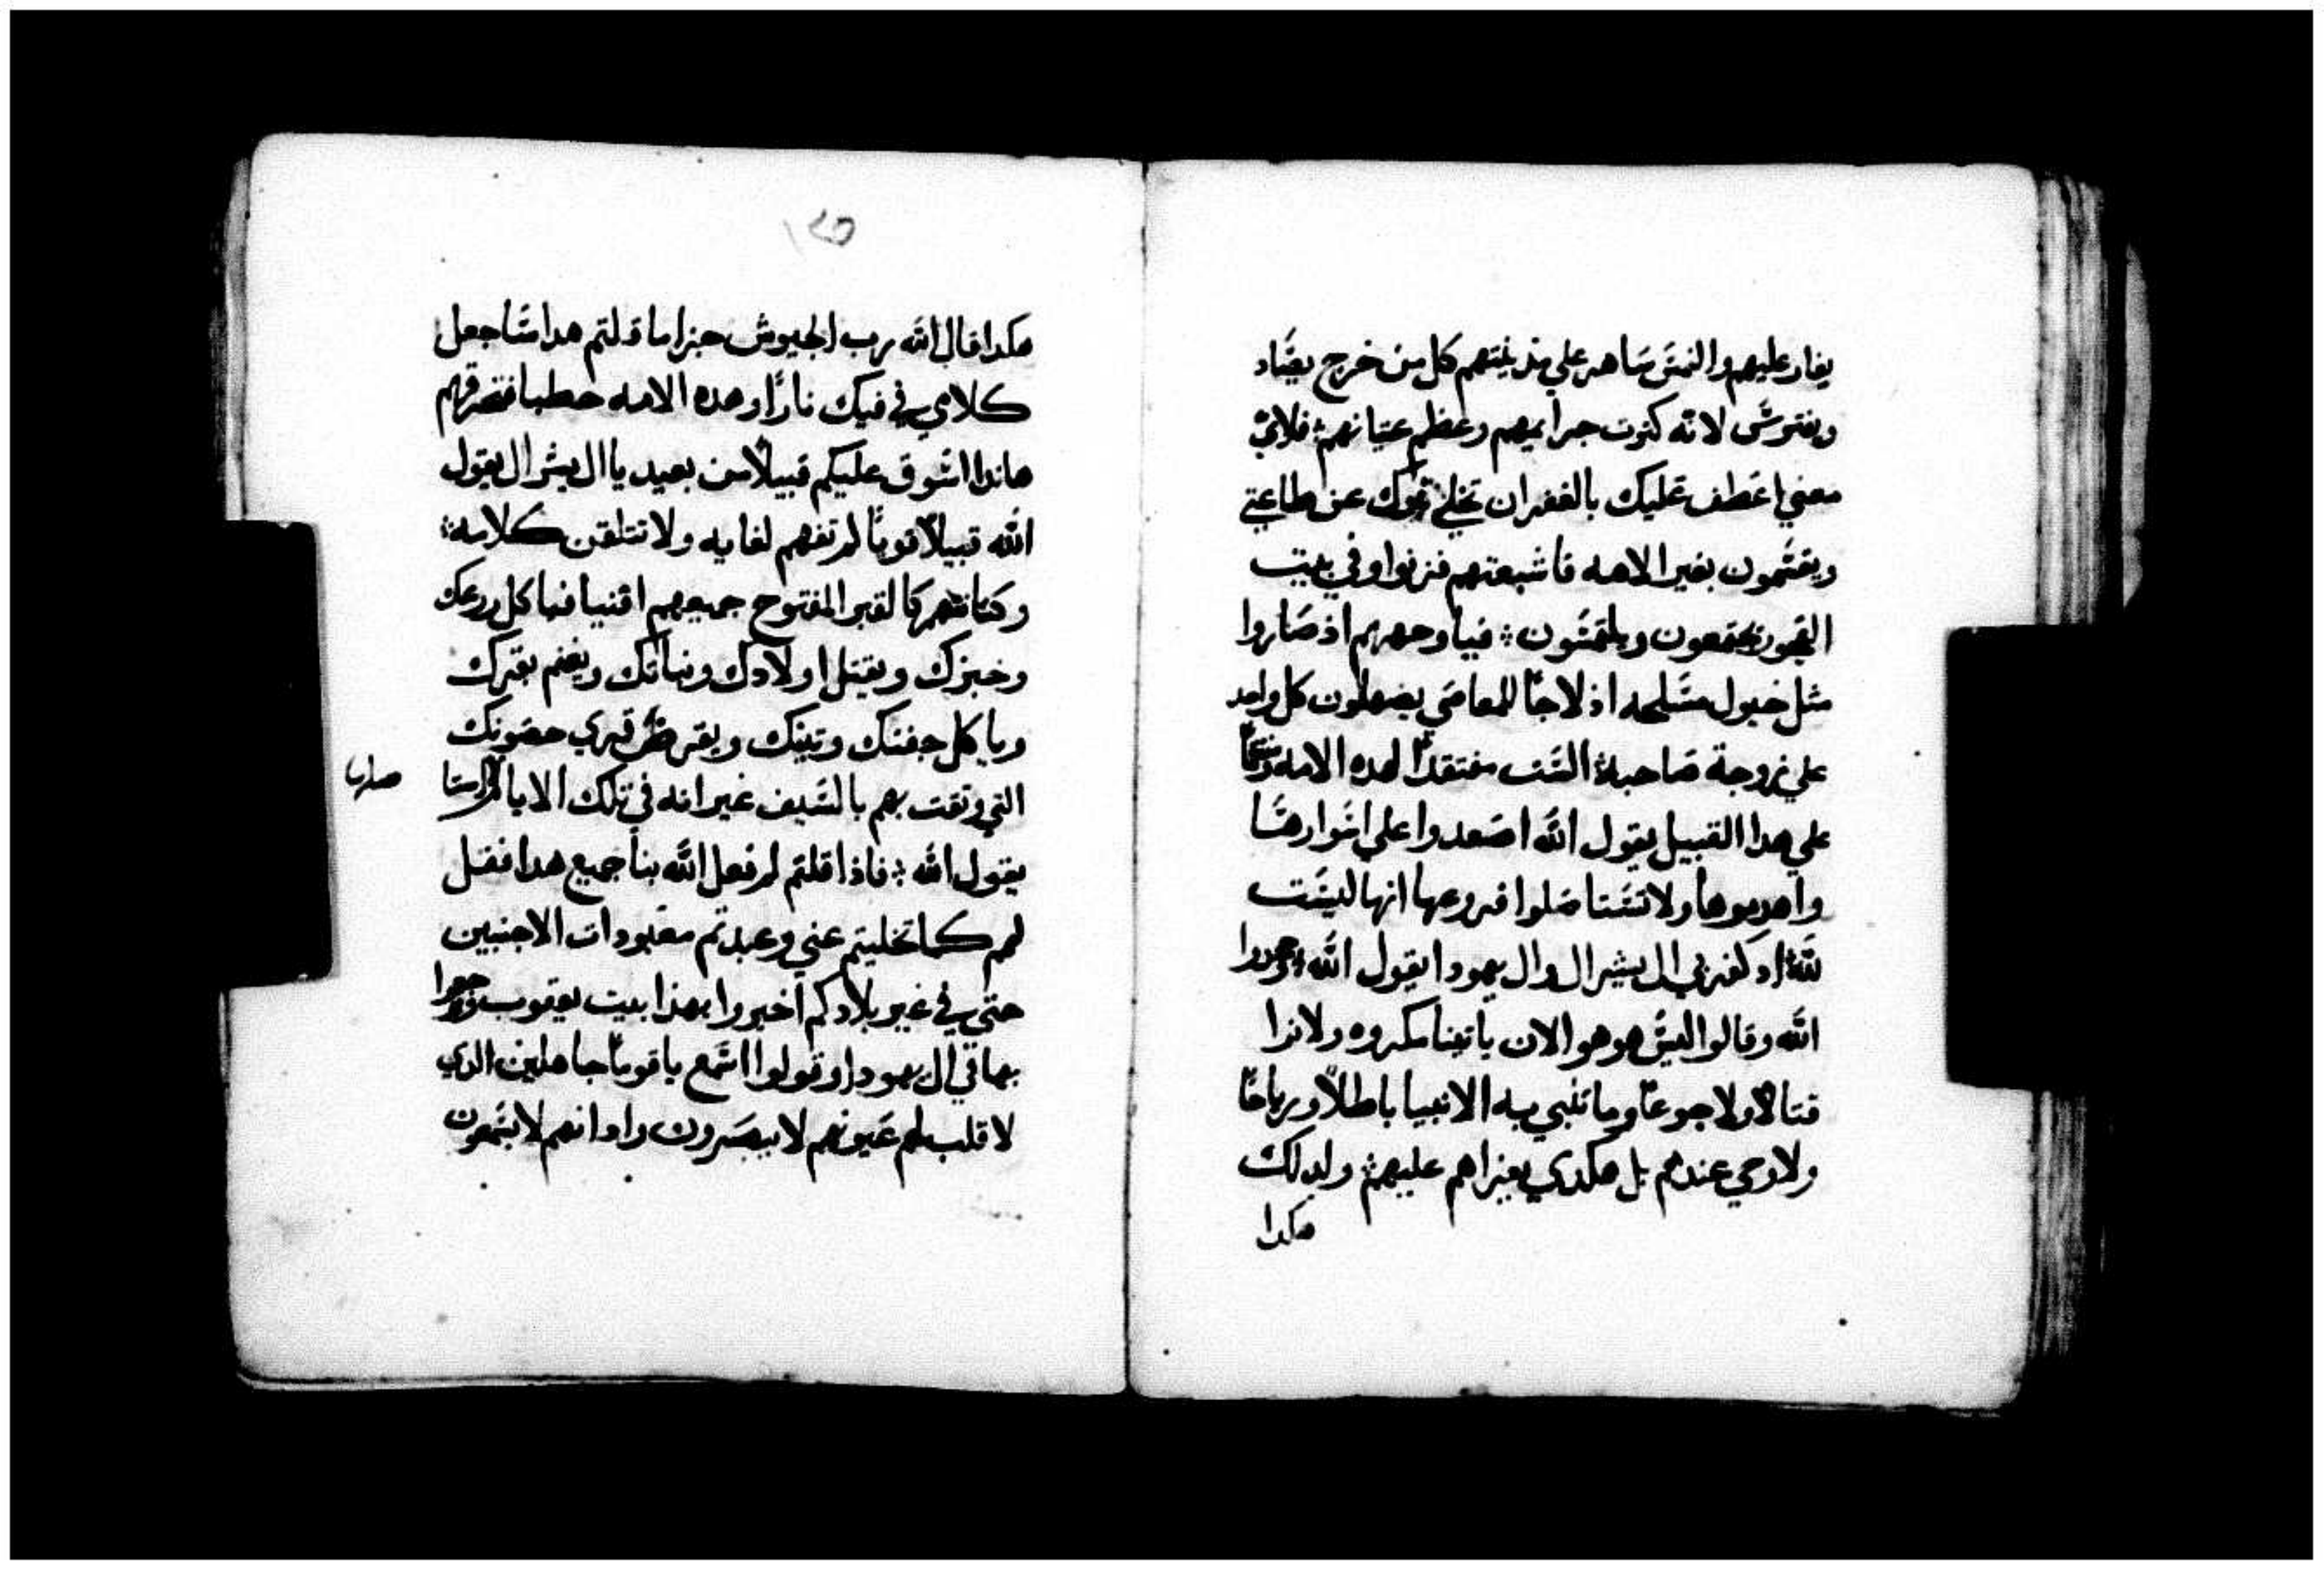 يغار عليهم والنمسَ سَاهر علي مدينتهم كل من خرج يصَاد
ويفترسَ لانه كثرت جرايمهم وعظم عتيانهم فلاي
معني اعَطف عَليك بالغفران تخلي بنوك عن طاعتي
ويقسَمون بغير الاهه فاشبعتهم فزنوا وفي بيت
الفجور يجتمعون ويلتمسَون فياوحهم اذ صَاروا
مثل خيول مسَلحه اذ لاجا للمعاصَي يصَهلون كل واحد
علي زوجة صَاحبه السَت مفتقدا لهده الامه
علي هدا القبيل يقول الله اصَعدوا علي اسَوارهَا
واهدموها ولا تسَتاصَلوا فروعها انها ليسَت
لله اد كفر بي ال يشرال وال يهودا يقول الله
الله وقالوا ليسَ هو هو الان ياتينا مكروه ولا نرا
قتالا ولا جوعا وما تنبي به الانبيا باطلا ورياحا
ولا وحي عندهم بل هكدي يجزاهم عليهم ولدلك
هكدا
هكدا قال الله رب الجيوش جزا ما قد قلتم هدا سَاجعل
كلامي في فيك نارا وهده الامه حطبا فتحرقهم
هاندا اسَوق عليكم قبيلا من بعيد يا ال يشرال يقول
الله قبيلا قوما لم تفهم لغايه ولا تتلقن كلامه
وكنانتهم كالقبر المفتوح جميعهم اقنيا فياكل زرعك
وخبزك ويقتل اولادك وبناتك ويغنم بقرك
وياكل جفنتك وتينك ويقرض قري حصَونك
التي وثقت بهم بالسَيف غير انه في تلك الايام
يقول الله فاذا قلتم لم فعل الله بنا جميع هدا فقل
لهم كما تخليتم عني وعبدتم معَبودات الاجنبين
حتي في غير بلادكم اخبروا بهذا بيت يعقوب
بها في ال يهودا وقولوا اسَمع يا قوما جاهلين الدي
لا قلب لهم عَيونهم لا يبصَرون وادانهم لا يسَمعون